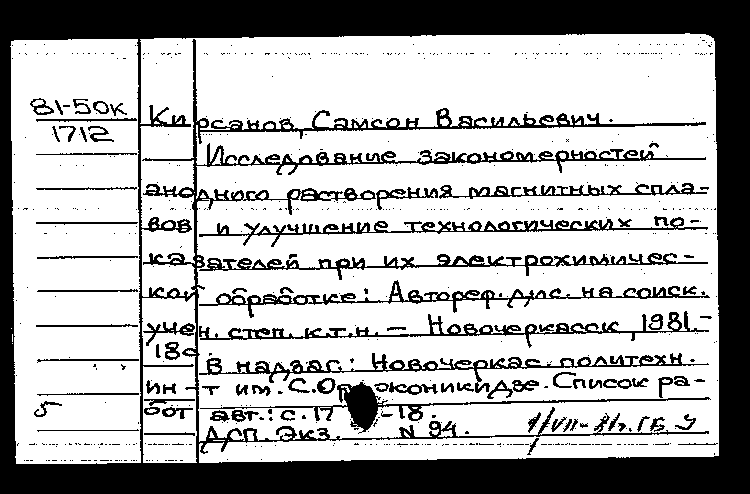 81-50к
1712
Кирсанов, Самсон Васильевич.
Исследование закономерностей
анодного растворения магнитных спла-
вов и улучшение технологических по-
казателей при их электрохимичес-
кой обработке: Автореф. дис. на соиск.
учен. степ. к.т.н. - Новочеркасск, 1981.-
18с
В надзаг.: Новочеркас. политехн.
ин-т им. С.Орджоникидзе. Список ра-
5 бот авт.: с. 17-18.
ДСП. Экз. N 94.